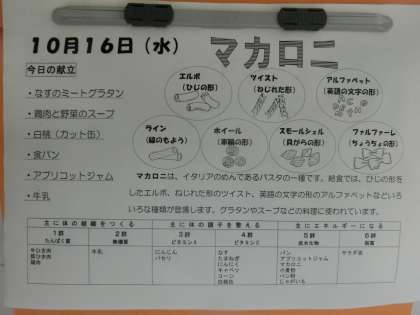 10月16日（水）
マカロニ
今日の献立
・なすのミートグラタン
・鶏肉と野菜のスープ
・白桃（カット缶）
・食パン
・アプリコットジャム
・牛乳
エルボ
（ひじの形）
ツイスト
（ねじれた形）
アルファベット
（英語の文字の形）
ライン
（線のもよう）
ホイール
（車輪の形）
スモールシェル
（貝がらの形）
ファルファーレ
（ちょうちょの形）
マカロニは、イタリアのめんであるパスタの一種です。給食では、ひじの形を
したエルボ、ねじれた形のツイスト、英語の文字の形のアルファベットなどいろ
いろな種類が登場します。グラタンやスープなどの料理に使われています。
主に体の組織をつくる
主に体の調子を整える
主にエネルギーになる
1群
たんぱく質
2群
無機質
3群
ビタミンA
4群
ビタミンC
5群
炭水化物
6群
脂質
牛ひき肉
豚ひき肉
鶏肉
牛乳
にんじん
パセリ
なす
たまねぎ
にんにく
キャベツ
コーン
白桃缶
パン
アプリコットジャム
マカロニ
小麦粉
パン粉
じゃがいも
サラダ油